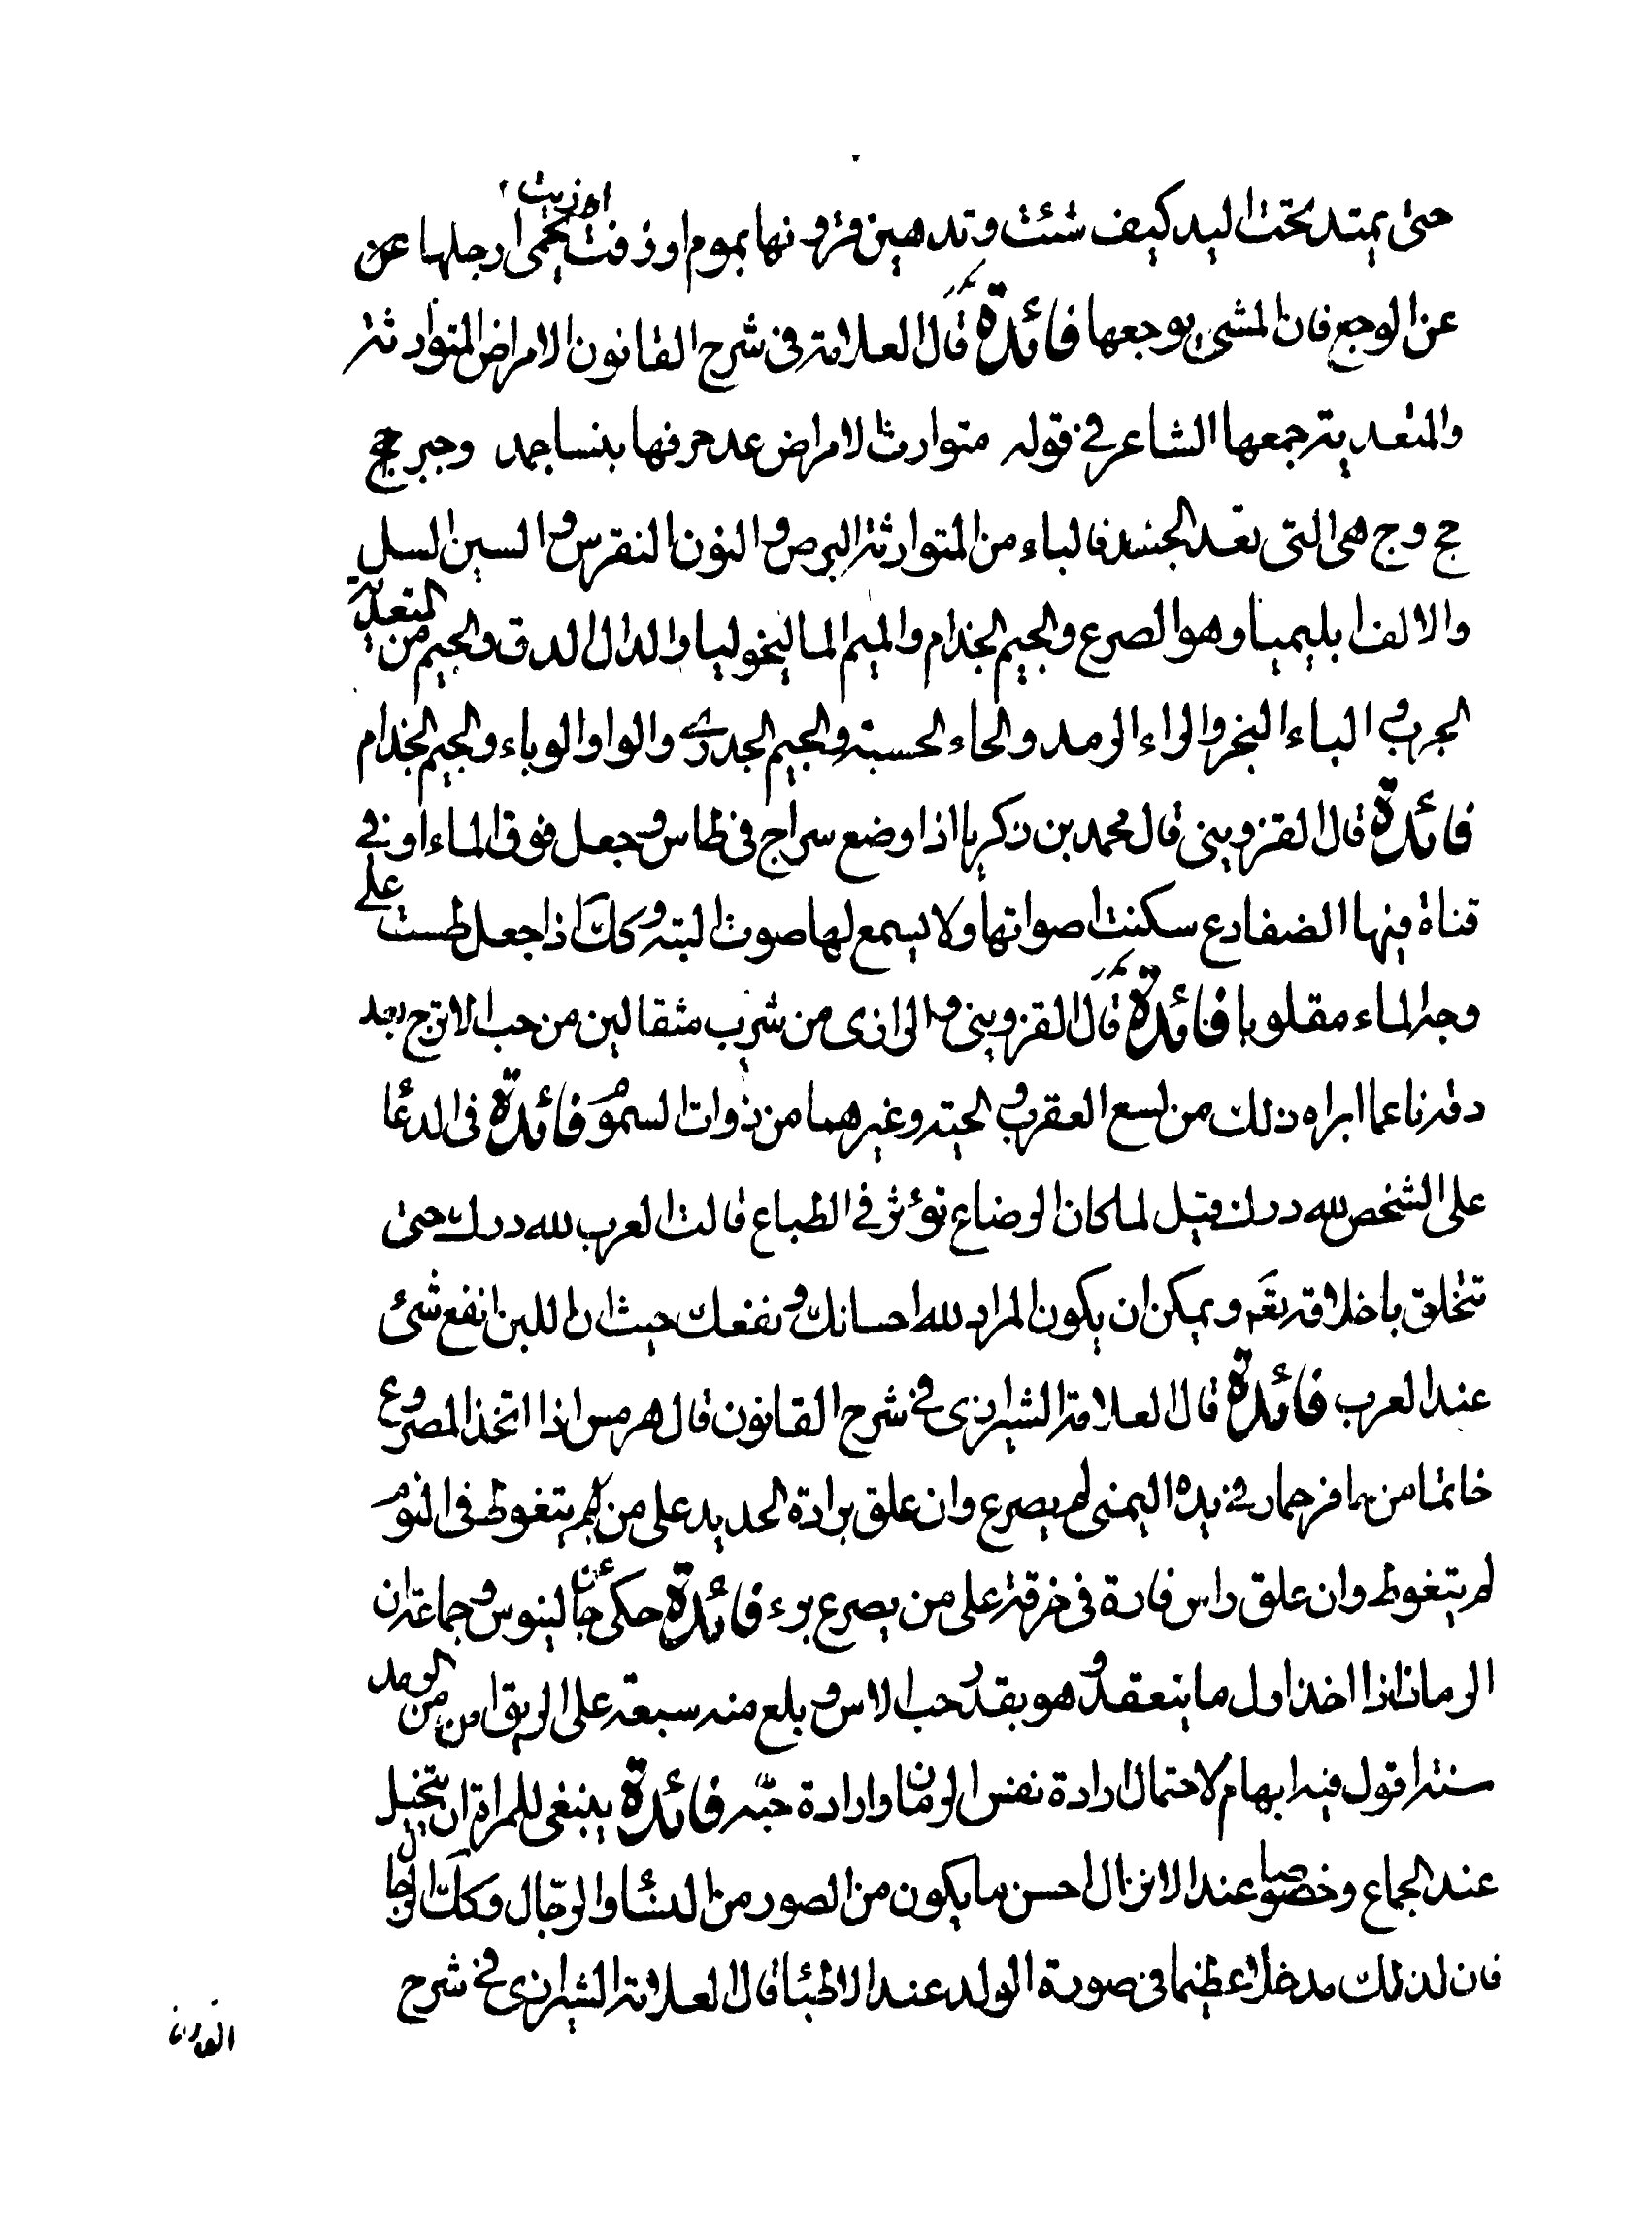 حتى يمتد تحت اليد كيف شئت وتدهين قرونها بموم او زفت او زيت يحمى ارجلها عن
عن الوجع فان المشي يوجعها فائدة قال العلامة في شرح القانون الامراض المتوارثة
والمتعدية جمعها الشاعر في قوله متوارث الامراض عد حرفها بنساجمد وجبرجح
جح وج هى التى تعد الجنسد فالباء من المتوارثة البرص والنون النقرس والسين السل
والالف ابليميا وهو الصرع والجيم الجذام والميم الماليخوليا والدال الدق والجيم من المتعدية
الجرب والباء البخر والراء الرمد والحاء الحسبة والجيم الجدرى والواو الوباء والجيم الجذام
فائدة قال القزويني قال محمد بن زكريا اذا وضع سراج في طاس وجعل فوق الماء او في
قناة فيها الضفادع سكنت اصواتها ولا يسمع لها صوت البتة وكك اذا جعل طست على
وجه الماء مقلوبا فائدة قال القزويني والرازى من شرب مثقالين من حب الاترج بعد
دقه ناعما ابراه ذلك من لسع العقرب والحية وغيرهما من ذوات السموم فائدة فى الدعا
على الشخص لله درك قيل لما كان الرضاع تؤثر في الطباع قالت العرب لله درك حتى
تتخلق باخلاقه تعم ويمكن ان يكون المراد لله احسانك ونفعك حيث ان اللبن انفع شئ
عند العرب فائدة قال العلامة الشيرازى في شرح القانون قال هرمس اذا اتخذ المصروع
خاتما من حافر حمار في يده اليمنى لم يصرع وان علق برادة الحديد على من يتغوط فى النوم
لم يتغوط وان علق راس فارة فى خرقة على من يصرع برء فائدة حكى عن جالينوس وجماعة ان
الرمان اذا اخذ اول ما ينعقد وهو بقدر حب الاس وبلع منه سبعة على الريق امن من الرمد
سنة اقول فيه ابهام لاحتمال ارادة نفس الرمان وارادة حبّه فائدة ينبغى للمراة ان يتخيل
عند الجماع وخصوصا عند الانزال احسن ما يكون من الصور من النساء والرّجال وكك الرجال
فان لذلك مدخلا عظيما فى صورة الولد عند الاطباء قال العلامة الشيرازى في شرح
القانون